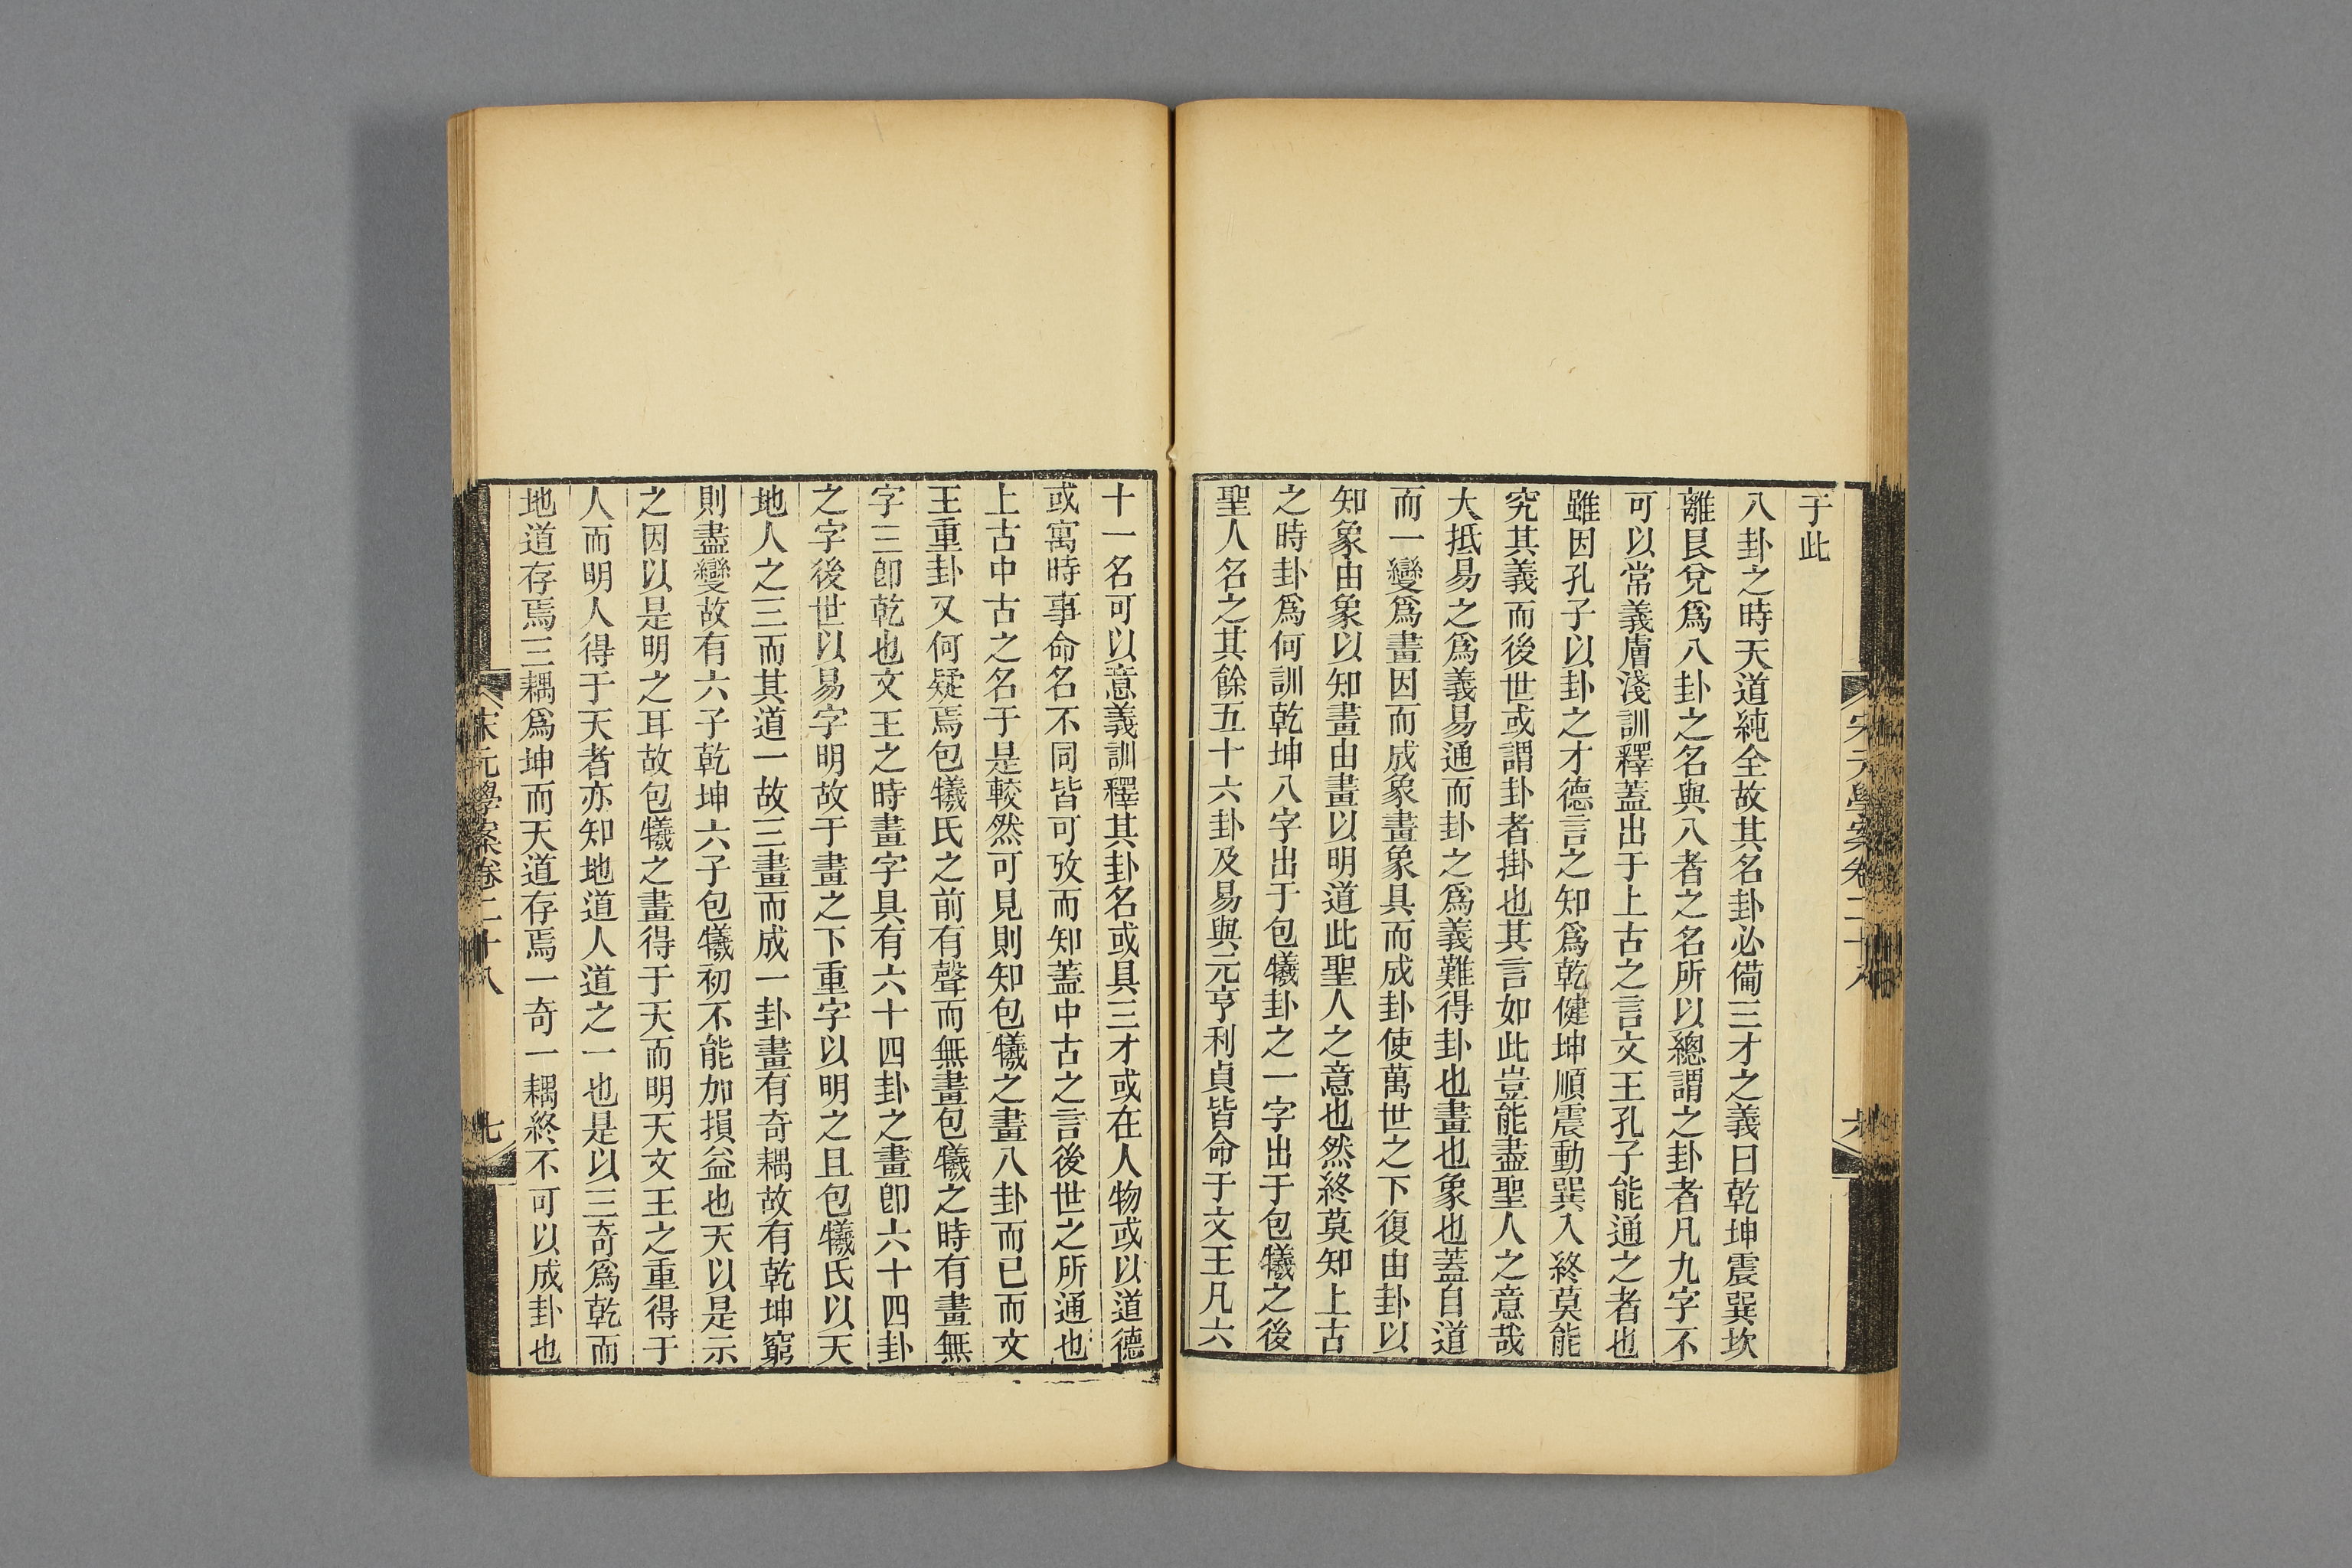 于此
八卦之時天道純全故其名卦必備三才之義曰乾坤震巽坎
離艮兌爲八卦之名與八者之名所以總謂之卦者凡九字不
可以常義膚淺訓釋蓋出于上古之言文王孔子能通之者也
雖因孔子以卦之才德言之知爲乾健坤順震動巽入終莫能
究其義而後世或謂卦者掛也其言如此豈能盡聖人之意哉
大抵易之爲義易通而卦之爲義難得卦也畫也象也蓋自道
而一變爲畫因而成象畫象具而成卦使萬世之下復由卦以
知象由象以知畫由畫以明道此聖人之意也然終莫知上古
之時卦爲何訓乾坤八字出于包犧卦之一字出于包犧之後
聖人名之其餘五十六卦及易與元亨利貞皆命于文王凡六
十一名可以意義訓釋其卦名或具三才或在人物或以道德
或寓時事命名不同皆可攷而知蓋中古之言後世之所通也
上古中古之名于是較然可見則知包犧之畫八卦而已而文
王重卦又何疑焉包犧氏之前有聲而無畫包犧之時有畫無
字三卽乾也文王之時畫字具有六十四卦之畫卽六十四卦
之字後世以易字明故于畫之下重字以明之且包犧氏以天
地人之三而其道一故三畫而成一卦畫有奇耦故有乾坤窮
則盡變故有六子乾坤六子包犧初不能加損益也天以是示
之因以是明之耳故包犧之畫得于天而明天文王之重得于
人而明人得于天者亦知地道人道之一也是以三奇爲乾而
地道存焉三耦爲坤而天道存焉一奇一耦終不可以成卦也
宋元學案卷二十八
七